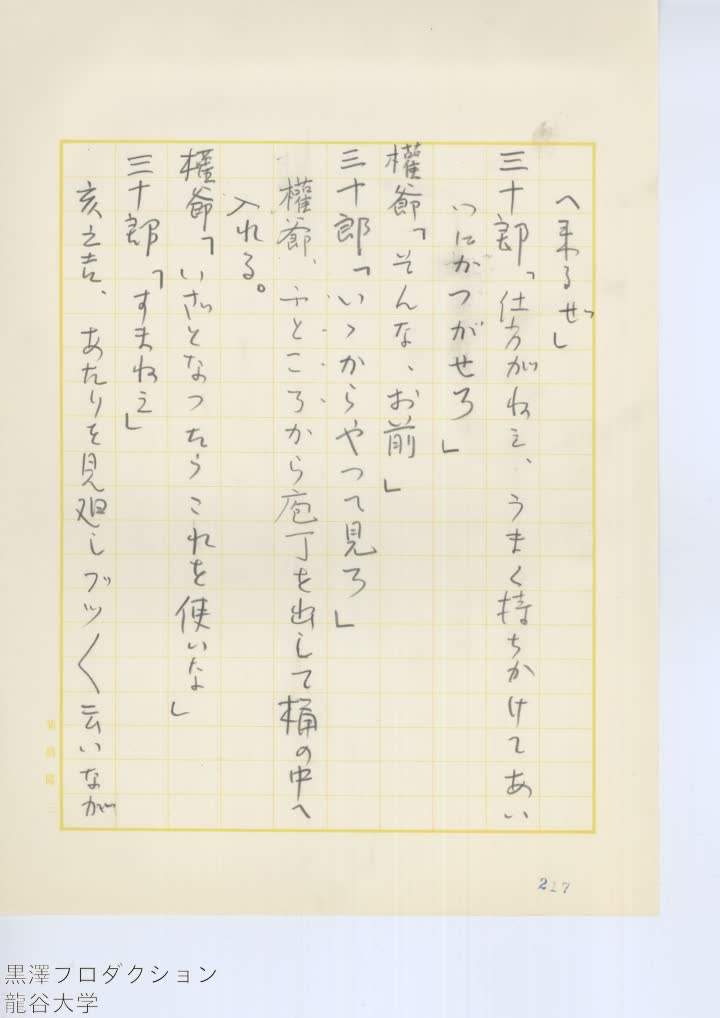 へ来るぜ」
三十郎「仕方がねえ、うまく持ちかけてあい
つにかつがせろ」
權爺「そんな、お前」
三十郎「いゝからやつて見ろ」
權爺、ふところから庖丁を出して桶の中へ
入れる。
權爺「いざとなつたらこれを使いな」
三十郎「すまねえ」
亥之吉、あたりを見廻しブツ〱云いなが
217
黒澤プロダクション
龍谷大学